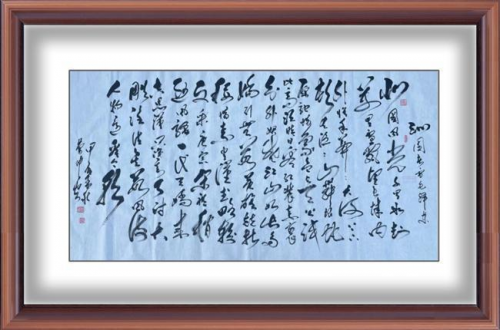 北国风光千里冰封
万里雪飘望长城内
外惟余莽莽大河上下
顿失滔滔山舞银蛇
原驰蜡象欲与天公试
比高须晴日看红装素裹
分外妖娆江山如此多
娇引无数英雄竞折
腰惜秦皇汉武略输
文采唐宗宋祖稍
逊风骚一代天骄成
吉思汗只识弯弓射大
雕俱往矣数风流
人物还看今朝